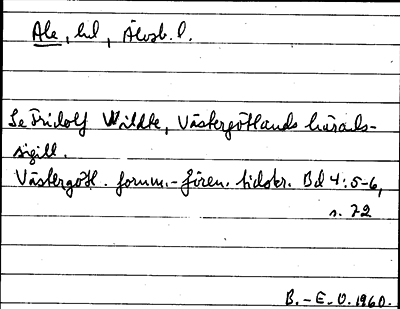 Ale, hd, Älvsb. l.
Se Fridolf Wildte, Västergötlands härads-
sigill.
Västergötl. fornm.-fören. tidskr. Bd 4:5-6,
s. 72
B.-E. O. 1960.